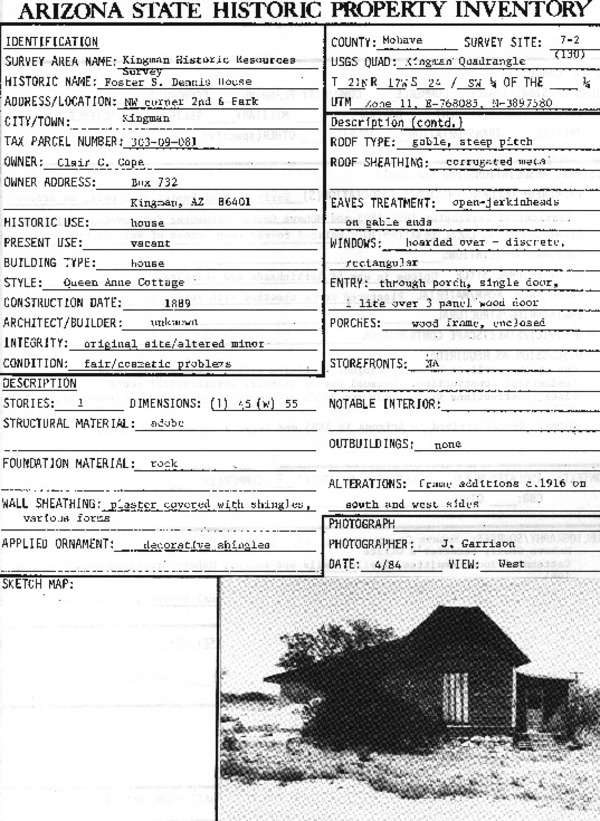 ARIZONA STATE HISTORIC PROPERTY INVENTORY
IDENTIFICATION
SURVEY AREA NAME: Kingman Historic Resources
Survey
HISTORIC NAME: Foster S. Dennis House
ADDRESS/LOCATION: NW corner 2nd & Park
CITY/TOWN: Kingman
TAX PARCEL NUMBER: 303-09-081
OWNER: Clair C. Cope
OWNER ADDRESS: Box 732
Kingman, AZ 86401
HISTORIC USE: house
PRESENT USE: vacant
BUILDING TYPE: house
STYLE: Queen Anne Cottage
CONSTRUCTION DATE: 1889
ARCHITECT/BUILDER: unknown
INTEGRITY: original site/altered minor
CONDITION: fair/cosmetic problems
DESCRIPTION
STORIES: 1 DIMENSIONS: (l) 45 (w) 55
STRUCTURAL MATERIAL: adobe
FOUNDATION MATERIAL: rock
WALL SHEATHING: plaster covered with shingles,
various forms
APPLIED ORNAMENT: decorative shingles
SKETCH MAP:
COUNTY: Mohave SURVEY SITE: 7-2
(130)
USGS QUAD: Kingman Quadrangle
T 21N R 17W S 24 / SW ¼ OF THE ¼
UTM Zone 11, E-768085, N-3897580
Description (contd.)
ROOF TYPE: gable, steep pitch
ROOF SHEATHING: corrugated metal
EAVES TREATMENT: open-jerkinheads
on gable ends
WINDOWS: boarded over - discrete,
rectangular
ENTRY: through porch, single door,
1 lite over 3 panel wood door
PORCHES: wood frame, enclosed
STOREFRONTS: NA
NOTABLE INTERIOR:
OUTBUILDINGS: none
ALTERATIONS: frame additions c.1916 on
south and west sides
PHOTOGRAPH
PHOTOGRAPHER: J. Garrison
DATE: 4/84 VIEW: West